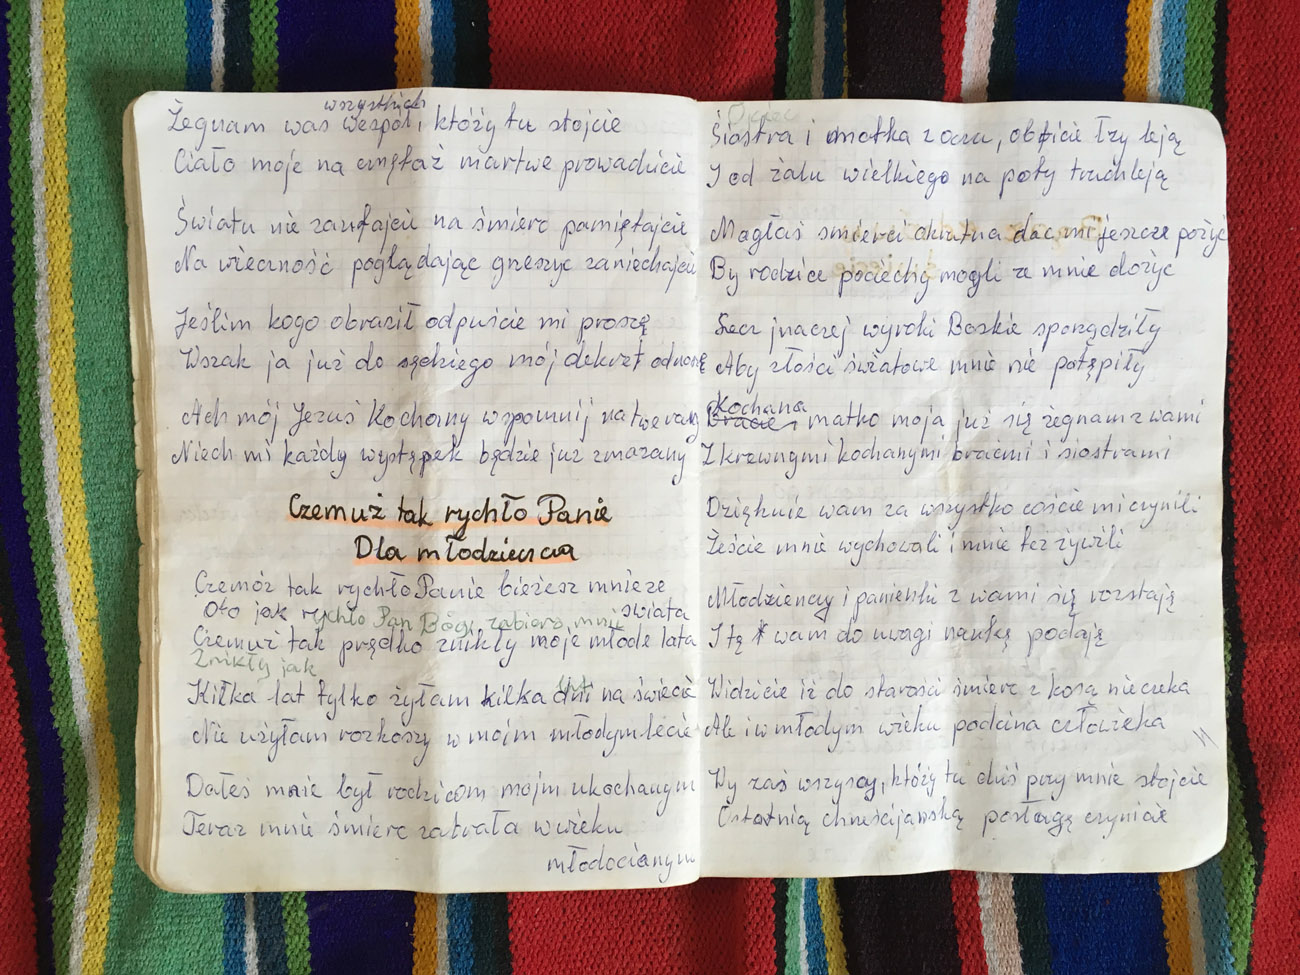 wszystkich
Żegnam was wespół, którzy tu stojcie
Ciało moje na cmętaż martwe prowadzicie
Światu nie zaufajcie na śmierc pamiętajcie
Na wiecznośc poglądając grzeszyc zaniechajcie
Jeślim kogo obraził odpuście mi proszę
Wszak ja już do sędziego mój dekret odnoszę
Ach mój Jezuś Kochany wspomnij na twe rany
Niech mi każdy występek będzie już zmazany
Czemuż tak rychło Panie
Dla młodzieńca
Czemóż tak rychło Panie bieżesz mnie ze
świata
Oto jak rychło Pan Bóg zabiera mnie
Czemuż tak prędko znikły moje młode lata
Znikły jak
Kilka lat tylko żyłam kilka dni na świecie
Nie użyłam rozkoszy w mojm młodym lecie
Dałeś mnie był rodzicom mojm ukochanym
Teraz mnie śmierc zabrała w wieku
młodocianym
Ojciec
Siostra i matka z oczu, obficie łzy leją
I od żalu wielkiego na poły truchleją
Mogłaś śmierci okrutna dac mi jeszcze pożyć
By rodzice pociechy mogli ze mnie dożyć
Lecz jnaczej wyroki Boskie sporządziły
Aby złości światowe mnie nie potępiły
Kochana
Bracie, matko moja już się żegnam z wami
Z krewnymi kochanymi braćmi i siostrami
Dziękuie wam za wszystko coście mi czynili
Żeście mnie wychowali i mnie też żywili
Młodzieńcy i panienki z wami się rozstają
I tę wam do uwagi naukę podaję
Widzicie iż do starości śmierc z kosą nie czeka
Ale i w młodym wieku podcina człowieka
Wy zaś wszyscy, którzy tu dziś przy mnie stojcie
Ostatnią chrześcijańską posługę czynicie